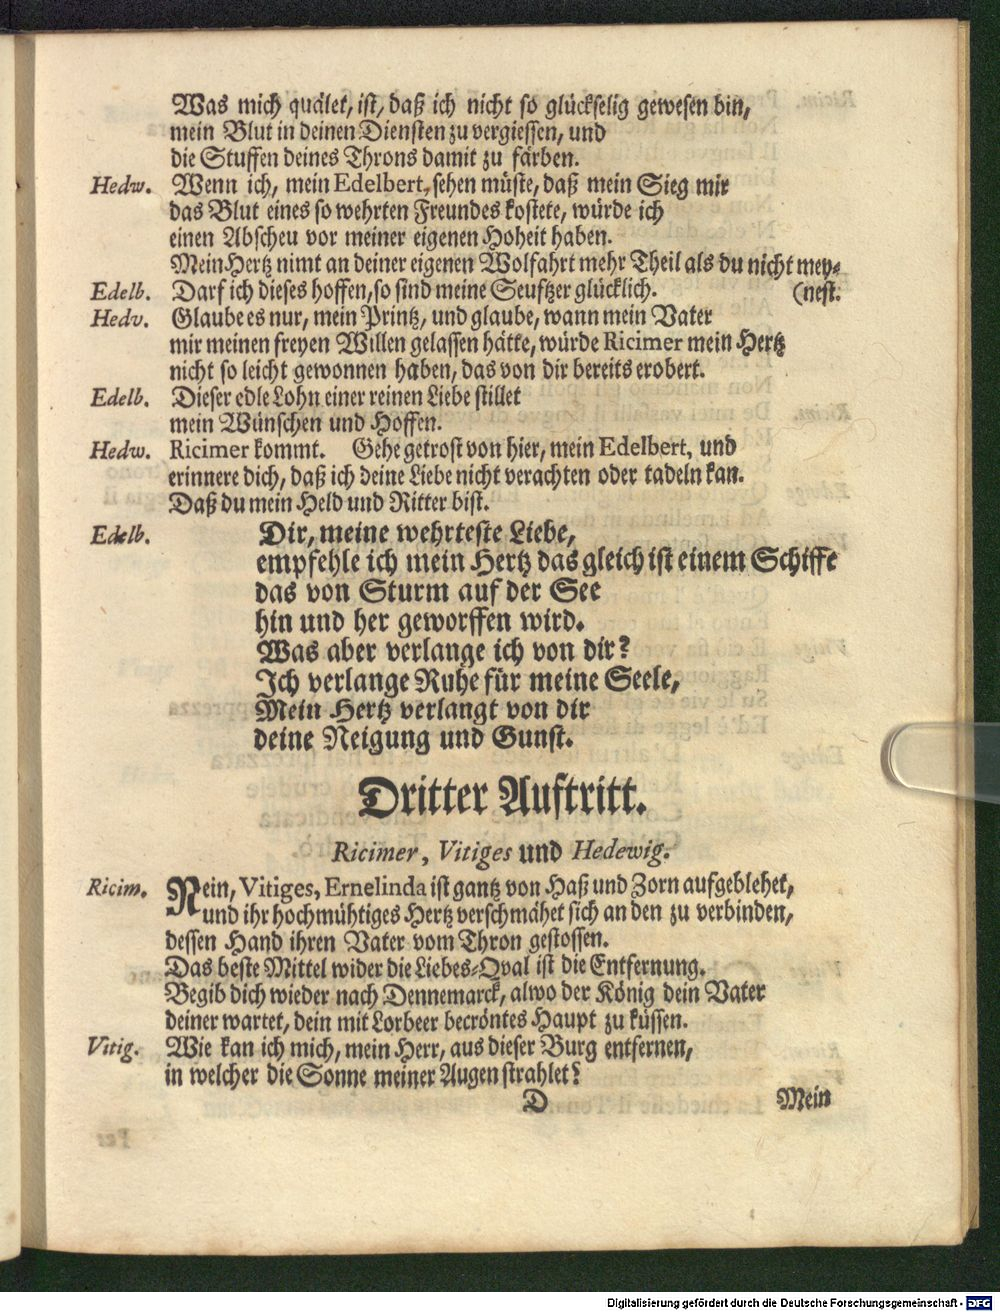 Was mich quälet, ist, daß ich nicht so glückselig gewesen bin,
mein Blut in deinen Diensten zu vergiessen, und
die Stuffen deines Throns damit zu färben.
Hedw. Wenn ich, mein Edelbert, sehen müste, daß mein Sieg mir
das Blut eines so wehrten Freundes kostete, würde ich
einen Abscheu vor meiner eigenen Hoheit haben.
Mein Hertz nimt an deiner eigenen Wolfahrt mehr Theil als du nicht mey-
Edelb. Darf ich dieses hoffen, so sind meine Seufftzer glücklich. (nest.
Hedv. Glaube es nur, mein Printz, und glaube, wann mein Vater
mir meinen freyen Willen gelassen hätte, würde Ricimer mein Hertz
nicht so leicht gewonnen haben, das von dir bereits erobert.
Edelb. Dieser edle Lohn einer reinen Liebe stillet
mein Wünschen und Hoffen.
Hedw. Ricimer kommt. Gehe getrost von hier, mein Edelbert, und
erinnere dich, daß ich deine Liebe nicht verachten oder tadeln kan.
Daß du mein Held und Ritter bist.
Edelb. Dir, meine wehrteste Liebe,
empfehle ich mein Hertz das gleich ist einem Schiffe
das von Sturm auf der See
hin und her geworffen wird.
Was aber verlange ich von dir?
Ich verlange Ruhe für meine Seele,
Mein Hertz verlangt von dir
deine Neigung und Gunst.
Dritter Auftritt.
Ricimer, Vitiges und Hedewig.
Ricim. Nein, Vitiges, Ernelinda ist gantz von Haß und Zorn aufgeblehet,
und ihr hochmühtiges Hertz verschmähet sich an den zu verbinden,
dessen Hand ihren Vater vom Thron gestossen.
Das beste Mittel wider die Liebes-Qval ist die Entfernung.
Begib dich wieder nach Dennemarck, alwo der König dein Vater
deiner wartet, dein mit Lorbeer becröntes Haupt zu küssen.
Vitig. Wie kan ich mich, mein Herr, aus dieser Burg entfernen,
in welcher die Sonne meiner Augen strahlet?
D Mein
Digitalisierung gefördert durch die Deutsche Forschungsgemeinschaft - DFG